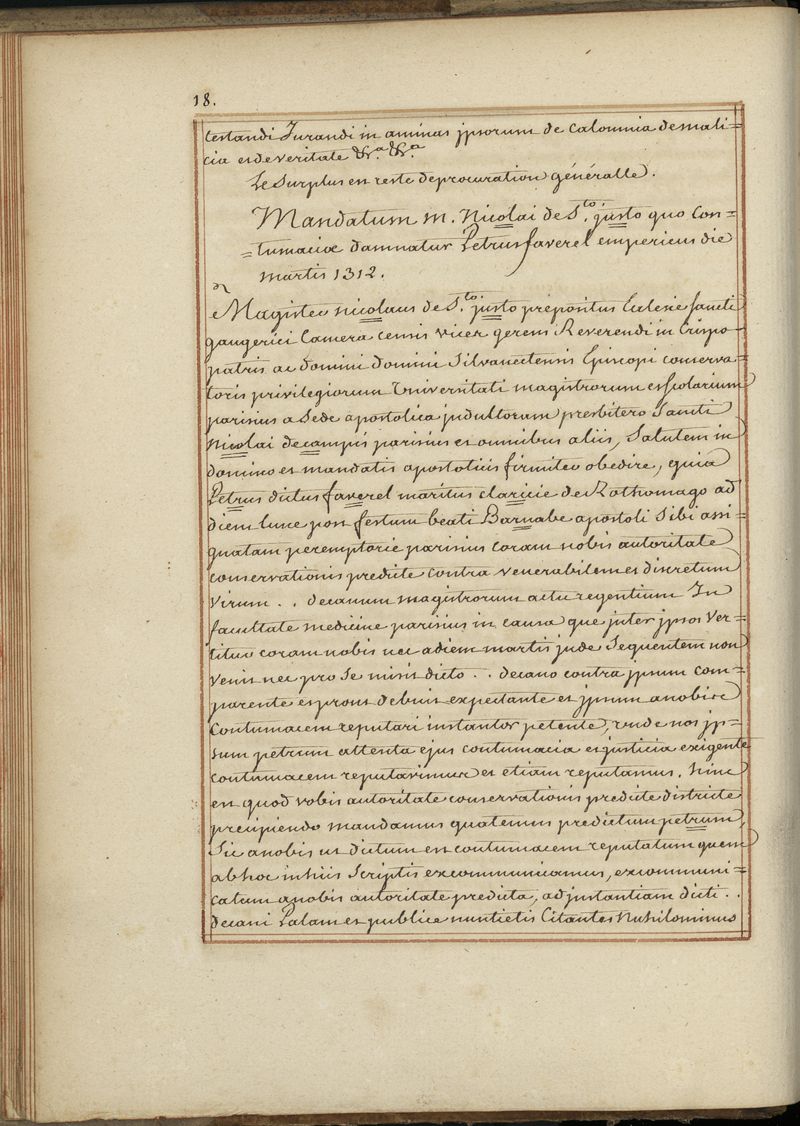 18.
testandi Jurandi in animas jpsorum de Calomnia demali=
cia et deveritate &.ª &.ª
Le Surplus est reste deprocuration généralle.
Mandatum m. Nicolai de S.to justo quo Con=
=tumaciæ damnatur Petrus faverel empericus die
martis 1312.
Magister nicolaus de S.to justo prepositus Ecclesie Sancti
gaugerici Camera censis vices gerens Reverendi in Cristo
patris ac domini domini Silvanectensis Episcopi conserva=
toris privilegiorum Universitati magistrorum et scolarium
parisius a Sede apostolica jndultorum presbitero Sancti
Nicolai decampis parisius et omnibus aliis, Salutem in
domino et mandatis apostolicis firmiter obedire, quia
Petrus dictus faverel maritus claricie de Rothomago ad
diem lune post festum beati Barnabe apostoli Sibi assi=
gnatam peremptorie parisius coram nobis autoritate
conservationis predicte contra venerabilem et discretum
virum . . decanum magistrorum actu regentium In
facultate medicine parisius in causa que jnter jpsos ver=
titur coram nobis nec adiem martis jnde Sequentem non
venit nec pro Se misit dicto . . decano contra jpsum com=
parente et prout debuit expectante et jpsum anobis
contumacem reputari instanter petente, unde nos jp=
sum petrum attenta ejus contumacia et justicia exigente
contumacem reputavimus et etiam reputamus. hinc
est quod vobis autoritate conservationis predicte districte
precipiendo mandamus quatenus predictum petrum,
Sic anobis ut dictum est contumacem reputatum quem
abhoc inhiis Scriptis excommunicamus, excommuni=
catum anobis autoritate predicta, adjnstantiam dicti . .
decani Palam et publice nuntietis Citantes Nichilominus